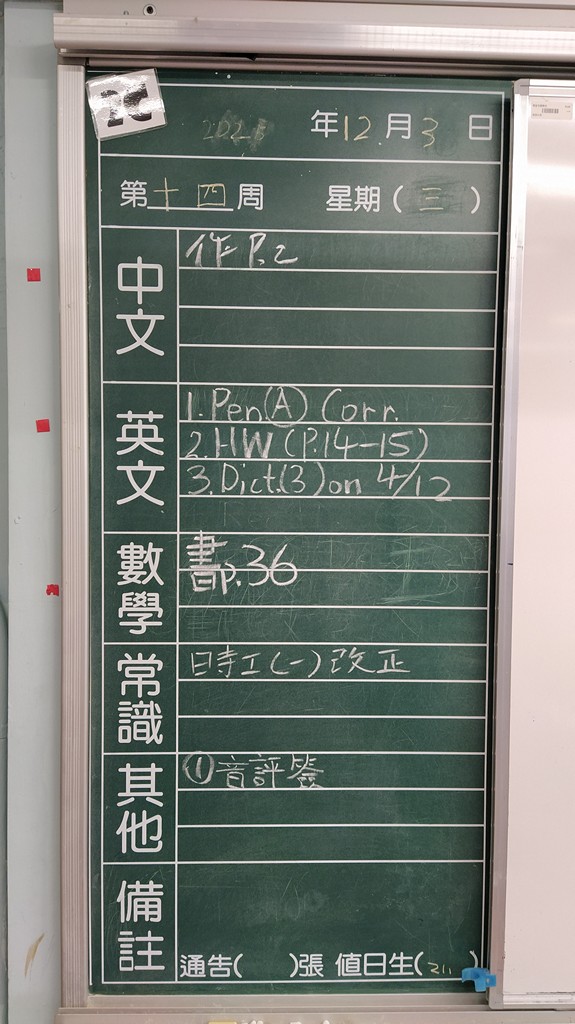 2C
年12月3日
第十四周 星期(三)
中文
作 P.2
英文
1. Pen(A) Corr.
2. HW (P.14-15)
3. Dict.(3) on 4/12
數學
書p.36
常識
時工(一)改正
其他
①音評簽
備註
通告( )張 值日生( )